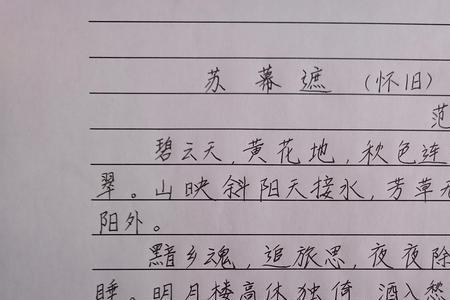 苏幕遮（怀旧）
范
碧云天，黄花地，秋色连
翠。山映斜阳天接水，芳草无
阳外。
黯乡魂，追旅思，夜夜除
睡。明月楼高休独倚，酒入愁